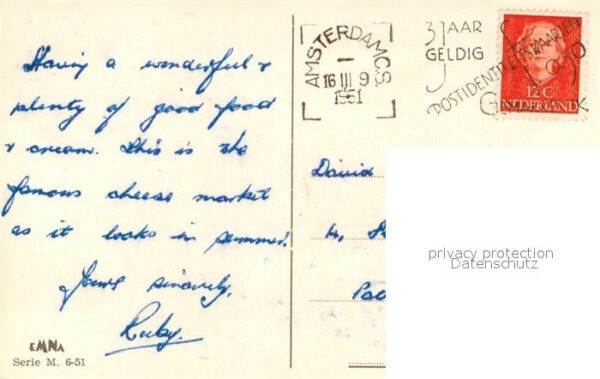 Having a wonderful &
plenty of good food
& cream. This is the
famous cheese market
as it looks in summer.
Yours sincerely,
Ruby.
EMNA
Serie M. 6-51
AMSTERDAM C.S.
16 III 9
1951
3 JAAR
GELDIG
POSTIDENTITEITSKAARTEN
12 C
NEDERLAND
David
4,
privacy protection
Datenschutz